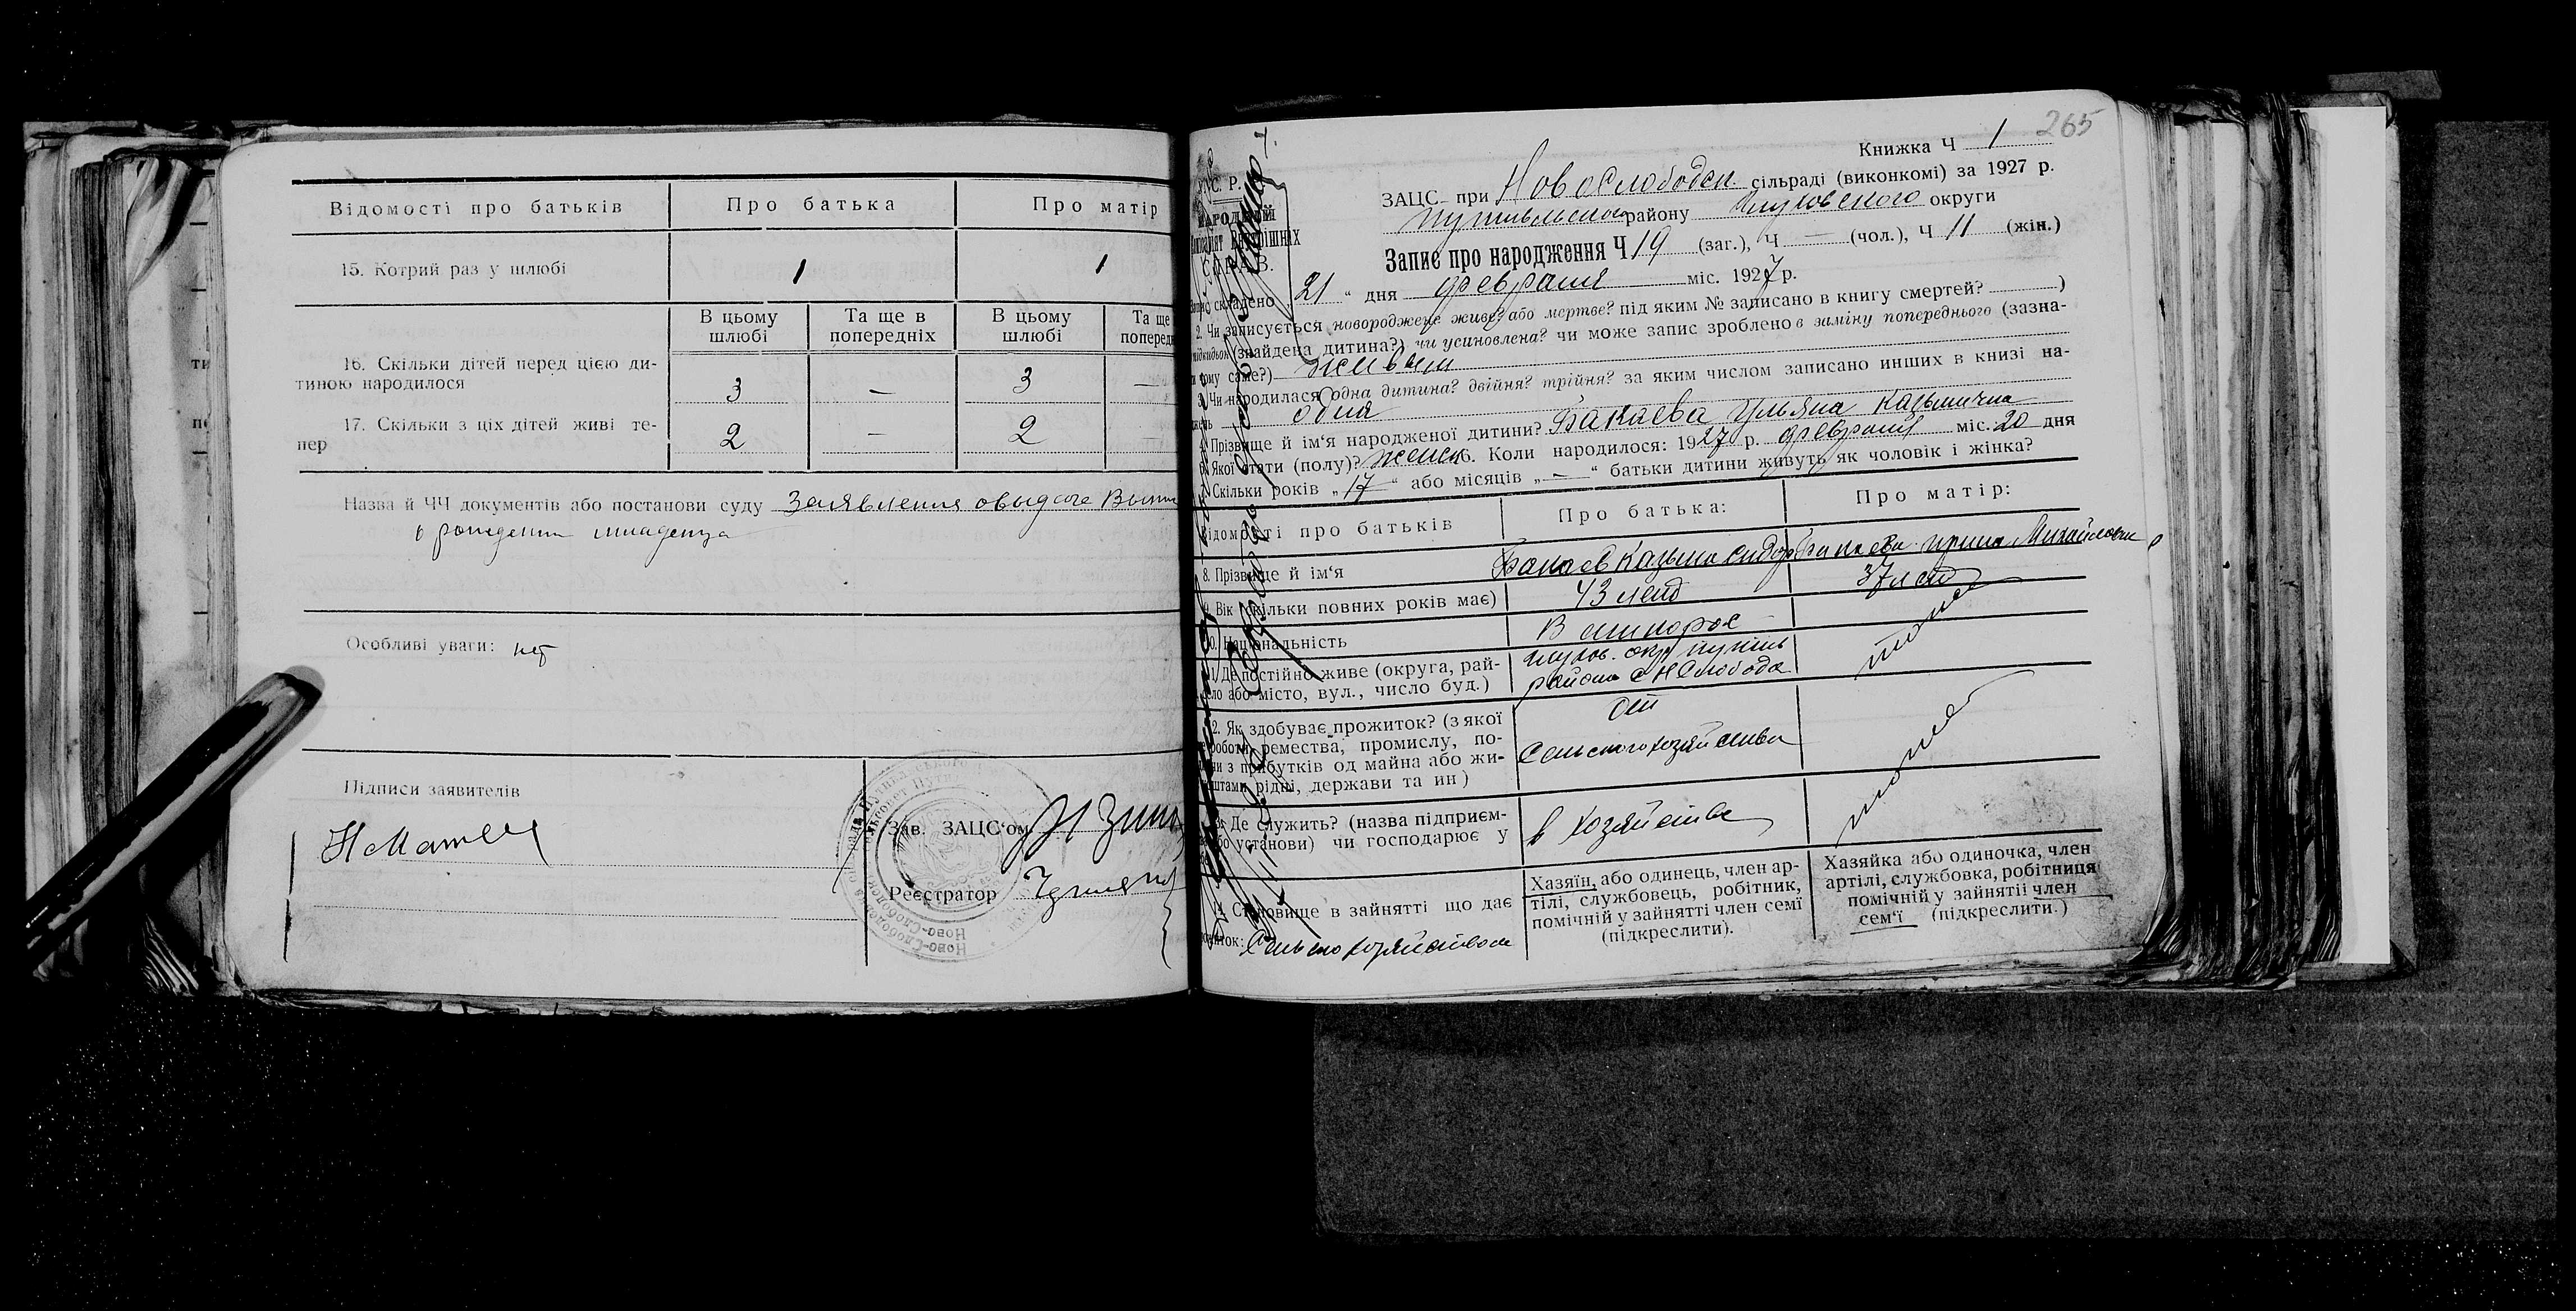 Відомості про батьків
Про батька
Про матір
15. Котрий раз у шлюбі
1
1
В цьому шлюбі
Та ще в попередніх
В цьому шлюбі
Та ще
16. Скільки дітей перед цією ди-
тиною народилося
3
—
3
—
17. Скільки з ціх дітей живі те-
пер
2
—
2
Назва й ЧЧ документів або постанови суду Заявления о выдаче
о рождении младенца
Особливі уваги: нет
Підписи заявителів
Зав. ЗАЦС'ом
Реєстратор
265
Книжка Ч 1
ЗАЦС при Новослободск. сільраді (виконкомі) за 1927 р.
Путивльского району Глуховского округи
Запис про народження Ч 19 (заг.), Ч — (чол.), Ч 11 (жін.)
складено 21 “ дня февраля міс. 1927 р.
2. Чи записується новороджене живе? або мертве? під яким № записано в книгу смертей? )
(знайдена дитина?) чи усиновлена? чи може запис зроблено в заміну попереднього (зазна-
чому саме?) живым
3. Чи народилася одна дитина? двійня? трійня? за яким числом записано инших в книзі на-
одна
4. Прізвище й ім‘я народженої дитини? Бакаева Ульяна Казьминична
5. Якої стати (полу)? женск 6. Коли народилося: 1927 р. февраля міс. 20 дня
7. Скільки років „17“ або місяців „—“ батьки дитини живуть як чоловік і жінка?
Відомості про батьків
Про батька:
Про матір:
8. Прізвище й ім‘я
Бакаев Казьма Сидор
Бакаева Ирина Михайловна
9. Вік (скільки повних років має)
43 лет
37 лет
10. Національність
Великорос
тоже
11. Де постійно живе (округа, рай-
село або місто, вул., число буд.)
Глухов. окр Путивль
района с Н Слобода
12. Як здобуває прожиток? (з якої
роботи, ремества, промислу, по-
з прибутків од майна або жи-
коштами рідні, держави та ин)
от
Сельского хозяйства
тоже
13. Де служить? (назва підприєм-
або установи) чи господарює у
в хозяйстве
14. Становище в зайнятті що дає
прожиток: Сельско хозяйством
Хазяїн, або одинець, член ар-
тілі, службовець, робітник,
помічній у зайнятті член семї
(підкреслити).
Хазяйка або одиночка, член
артілі, службовка, робітниця
помічній у зайнятії член
сем‘ї (підкреслити.)